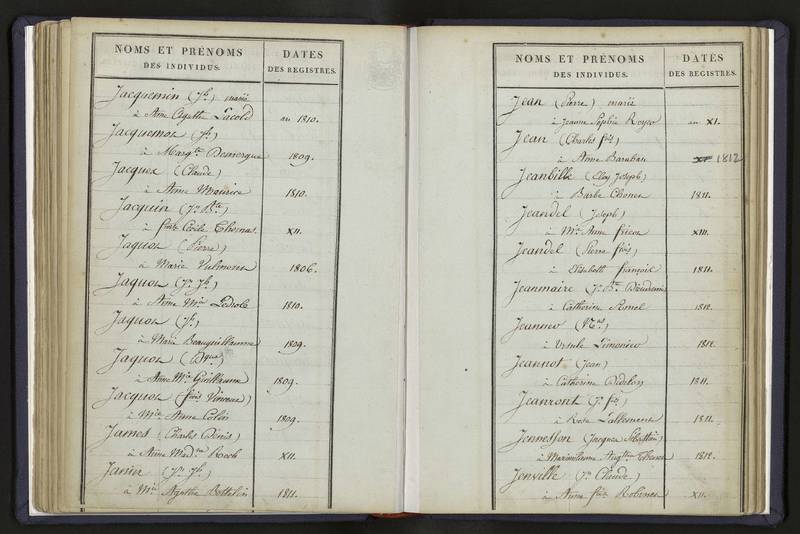 NOMS ET PRÉNOMS
DES INDIVIDUS.
DATES
DES REGISTRES.
Jacquemin (Jh) marié
à Anne Agathe Lacold an 1810.
Jacquemot (Jh)
à Margte Demergue 1809.
Jacquez (Claude)
à Anne Maurice 1810.
Jacquin (Jn Bte)
à foise Cécile Thomas. XII.
Jaquot (Pierre)
à Marie Vulmont 1806.
Jaquot (Jn Jh)
à Anne Mie 1810.
Jaquot (Jh)
à Marie Beauguillaume 1809.
Jaquot (Dque)
à Anne Mie Guillaume 1809.
Jacquot (fois Vincent)
à Mie Anne Colin 1809.
James (Charles Denis)
à Anne Madne Roch XII.
Janin (Jn Jh)
à Mie Agathe Bottelin 1811.
NOMS ET PRÉNOMS
DES INDIVIDUS.
DATES
DES REGISTRES.
Jean (Pierre) marié
à Jeanne Sophie an XI.
Jean (Charles fois)
à Anne Baraban XI 1812
Jeanbille (Eloy Joseph)
à Barbe 1811.
Jeandel (Joseph)
à Mie Anne XIII.
Jeandel (Pierre fois)
à Elisabeth françois 1811.
Jeanmaire (Jn Bte Dieudonné)
à Catherine 1812.
(Nas)
à Ursule Limonier 1812.
Jeannot (Jean)
à Catherine Didelon 1811.
Jeanront (Jn fois)
à Rose Lallement 1811.
Jennesson (Jacques Sébastien)
à Maximilienne Augtine 1812.
Jenville (Jn Claude)
à Anne foise Robinet XII.